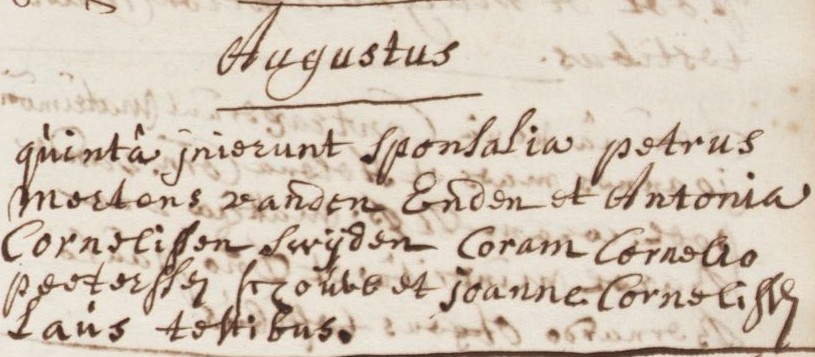 Augustus
quintâ jnierunt sponsalia petrus
mertens vanden Enden et Antonia
Cornelissen swijden Coram Cornelio
peeterssen et joanne Cornelissen
Laus testibus.